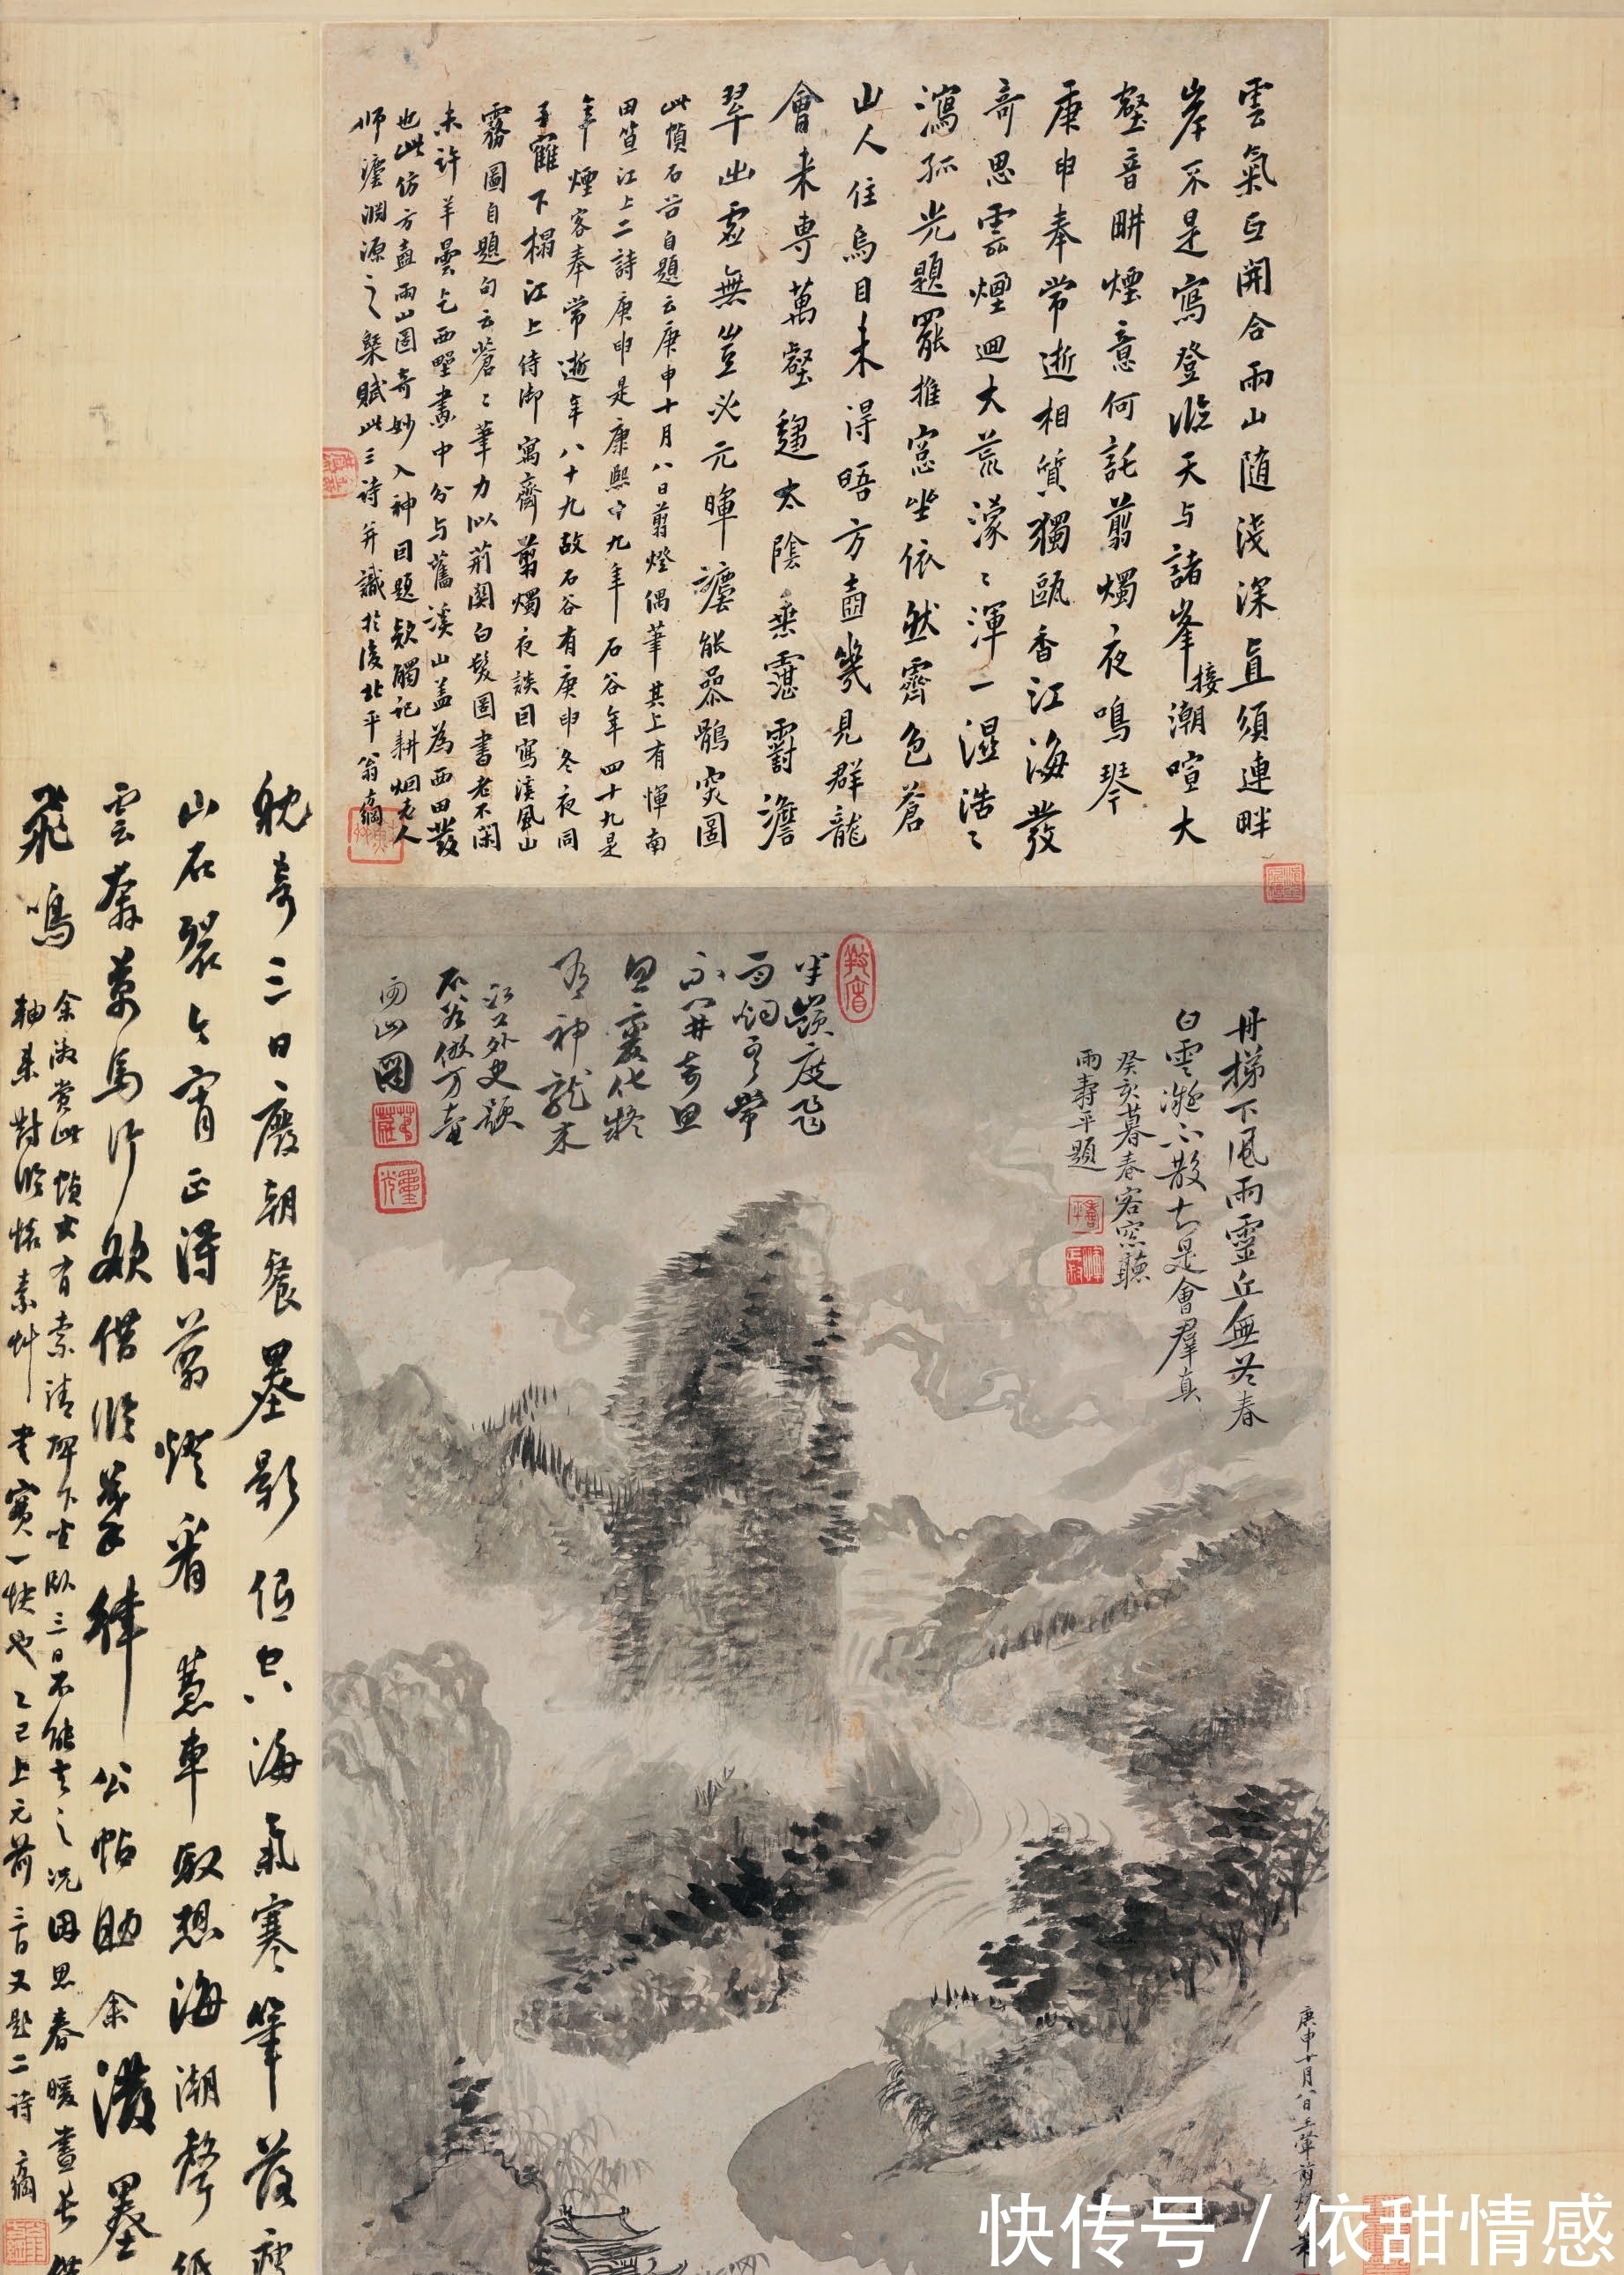 雲氣互開合雨山隨淺深直須連畔
岸不是寫登臨天与諸峯接潮喧大
壑音畊煙意何託剪燭夜鳴琴
庚申奉常逝相質獨甌香江海發
奇思雲煙迴大荒濛〻渾一濕浩〻
瀉孤光題罷推窓坐依然霽色蒼
山人住烏目未得晤方壺幾見群龍
會来專萬壑趨太陰垂霮䨴澹
墨出虛無豈必元暉讓能暴鶻突圖
此幀石谷自題云庚申十月八日剪燈偶筆其上有惲南
田笪江上二詩庚申是康熙十九年石谷年四十九是
年煙客奉常逝年八十九故石谷有庚申冬夜同
王寉下榻江上侍御寫齋剪燭夜談因寫溪風山
霧圖自題句云蒼〻筆力似荊關白髮圖書老不閑
未許羊曇乞西墅畫中分与舊溪山蓋為西田發
也此仿方壺雨山圖奇妙入神因題欵觸記耕烟老人
师灋淵源之槩賦此三诗并識於後北平翁方綱
丹梯下風雨靈丘無冬春
白雲凝不散知是會羣真
癸亥暮春客窓聽
雨壽平題
半嶺度飛
雨烟雲常
不開奇思
思變化終
有神龍来
江上外史題
石谷倣方壺
雨山圖
庚申十月八日王翬剪燈
耽奇三日廢朝餐墨影低空海氣寒筆落
山石裂今宵正得剪燈看
蕙車馭想海潮聲
雲奔萬馬行欲借臨摹
公帖助余潑墨
飛鳴
余激賞此幀大有索靖碑下坐臥三日不能去之况因思春暖晝長
軸来對臨懷素艸書實一快也乙巳上元前三日又題二诗方綱
快传号 / 依甜情感